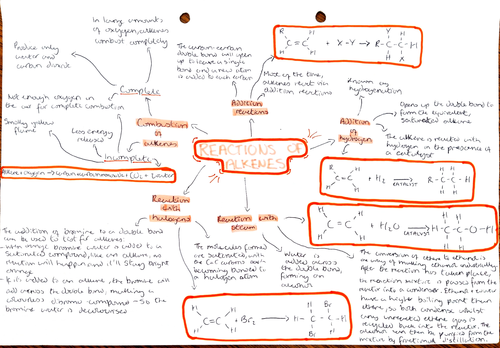 In large amounts
of oxygen, alkenes
combust completely
Produce only
water and
carbon dioxide
Complete
Not enough oxygen in
the air for complete combustion
Smokey yellow
flame
Less energy
released
Incomplete
Combustion of
alkenes
The carbon-carbon
double bond will open
up to leave a single
bond and a new atom
is added to each carbon
Most of the time,
alkenes react via
addition reactions
Addition
reactions
C = C + X-Y → R-C-C-H
Known as
hydrogenation
Addition
of
hydrogen
Opens up the double bond to
form the equivalent,
saturated alkane
The alkene is reacted with
hydrogen in the presence of
a catalyst
REACTIONS OF
ALKENES
C = C + H₂ → R-C-C-H
CATALYST
Reaction
with
halogens
Reaction with
steam
C = C + H₂O → H-C-C-O-H
CATALYST
The addition of bromine to a double bond
can be used to test for alkenes:
When orange bromine water is added to a
saturated compound, like an alkane, no
reaction will happen and it'll stay bright
orange
If it's added to an alkene, the bromine will
add across the double bond, making a
colourless dibromo compound - so the
bromine water is decolourised
The molecules formed
are saturated, with
the C=C carbons each
becoming bonded to
a halogen atom
Water is
added across
the double bond,
forming an
alcohol
The conversion of ethene to ethanol is
one way of making ethanol industrially.
After the reaction has taken place,
the reaction mixture is passed from the
reactor into a condenser. Ethanol + water
have a higher boiling point than
ethene, so both condense whilst
any unreacted ethene gas is
recycled back into the reactor. The
alcohol can then be purified from the
mixture by fractional distillation.
C = C + Br₂ → H-C-C-Br